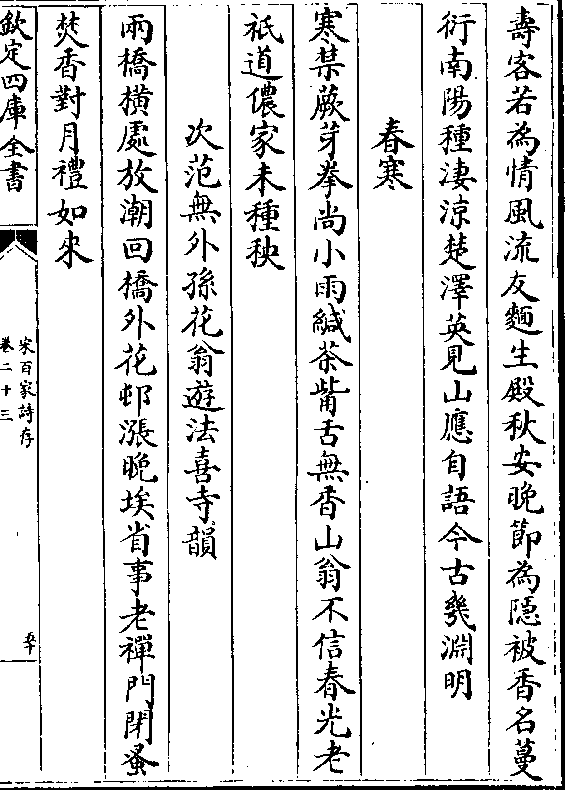 壽客若為情風流友麯生殿秋安晚節為隱被香名蔓
衍南陽種淒涼楚澤英見山應自語今古幾淵明
春寒
寒禁蕨芽拳尚小雨緘茶觜舌無香山翁不信春光老
祇道儂家未種秧
次范無外孫花翁遊法喜寺韻
兩橋橫處放潮回橋外花邨漲晚埃省事老禪門閉蚤
焚香對月禮如来
欽定四庫全書
宋百家詩存
卷二十三